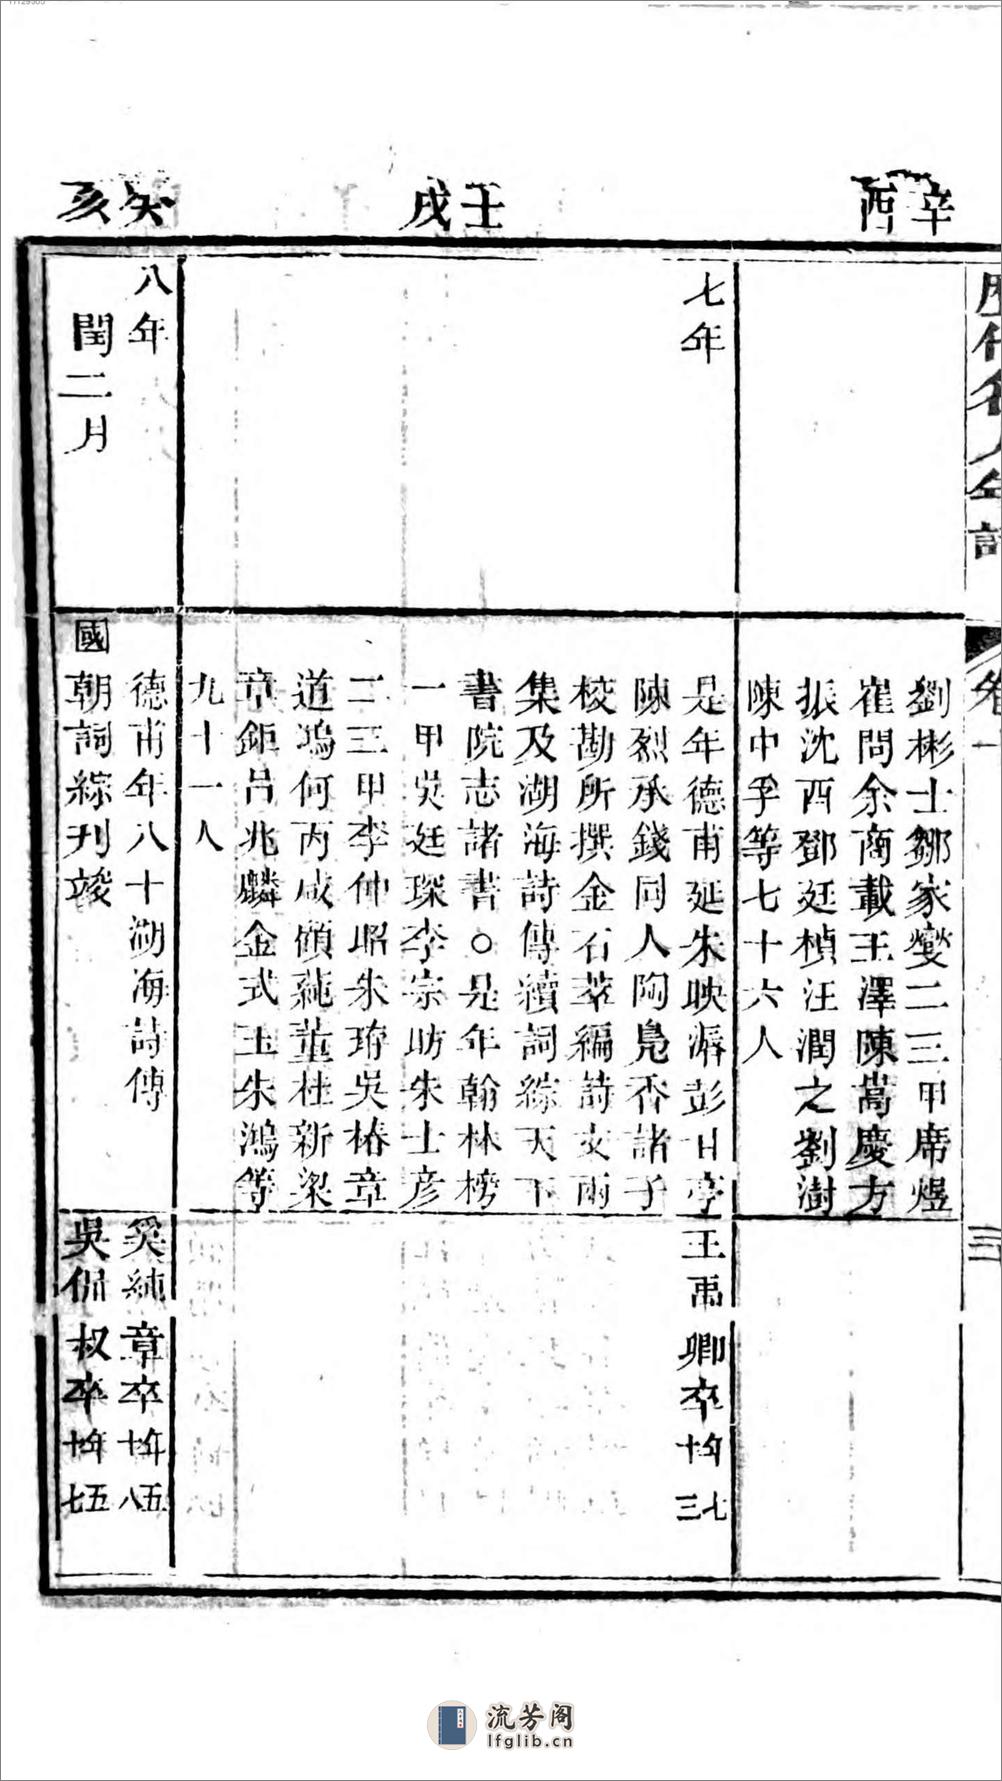 歷代名人年譜
卷十
三
辛酉
劉彬士鄒家燮二三甲席煜
崔問余商載王澤陳嵩慶方
振沈西鄧廷楨汪潤之劉澍
陳中孚等七十六人
壬戌
七年
是年德甫延朱映漘彭甘亭
陳烈承錢同人陶鳧香諸子
校勘所撰金石萃編詩文兩
集及湖海詩傳續詞綜天下
書院志諸書○是年翰林榜
一甲吳廷琛李宗昉朱士彥
二三甲李仲昭朱琦吳椿章
道鴻何丙咸顧蒓董杜新梁
章鉅呂兆麟金式玉朱鴻等
九十一人
王禹卿卒年七十三
癸亥
八年
閏二月
德甫年八十湖海詩傳
國朝詞綜刋竣
奚純章卒年五十八
吳侃叔卒年五十七
流芳阁
lfglib.cn